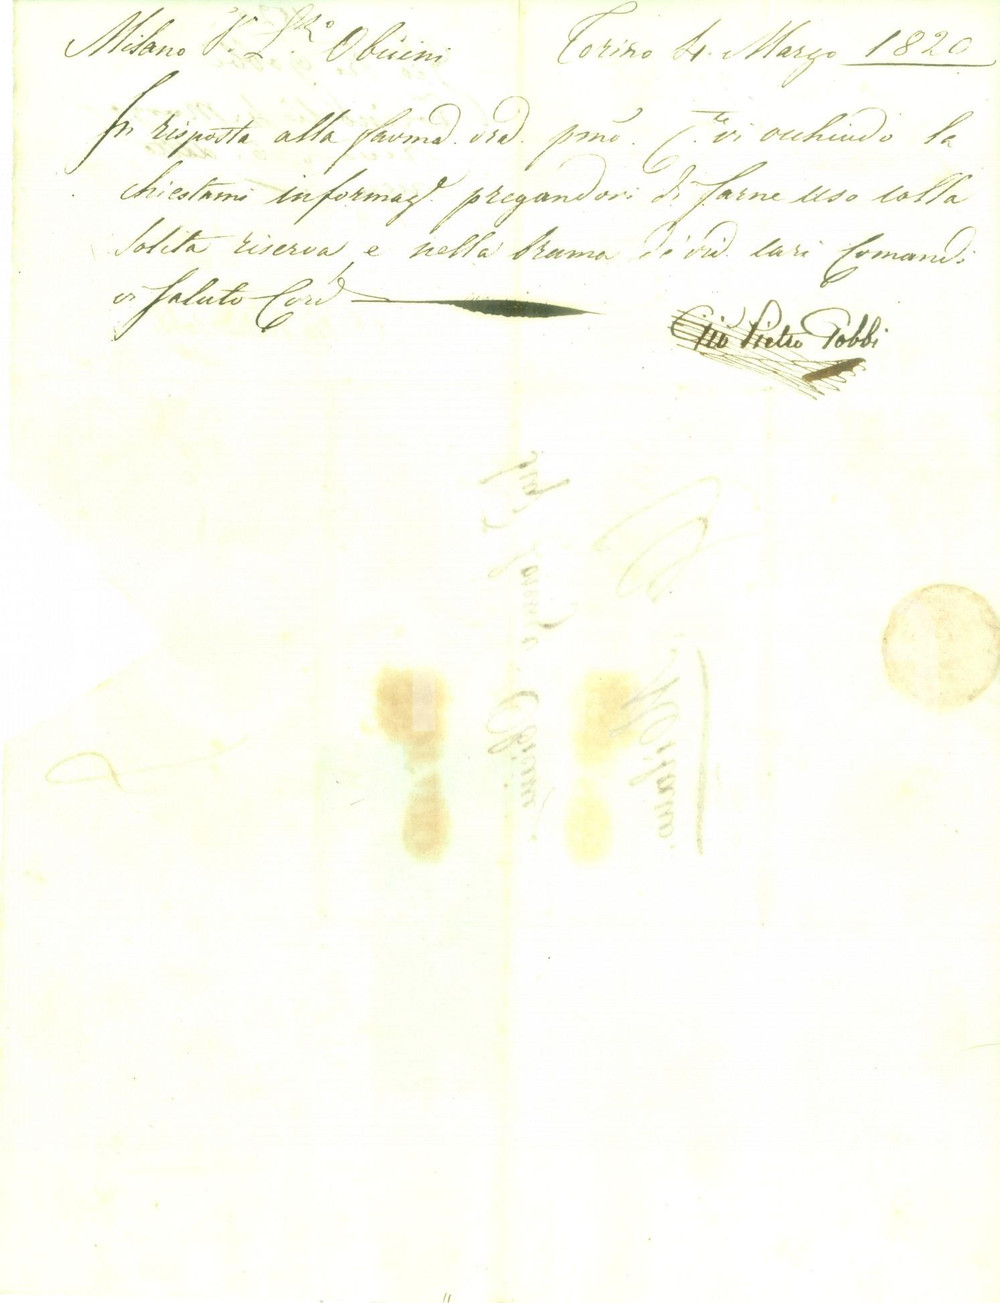 Milano S. L.co Obicini Torino 4. Marzo 1820
In risposta alla favma. vra. pmo. Cte. vi acchiudo le
chiestami informaz.i pregandovi di farne uso colla
solita riserva, e nella brama de' vri. cari Comandi
vi saluto Cord.
Gio Pietro Gobbi
Milano